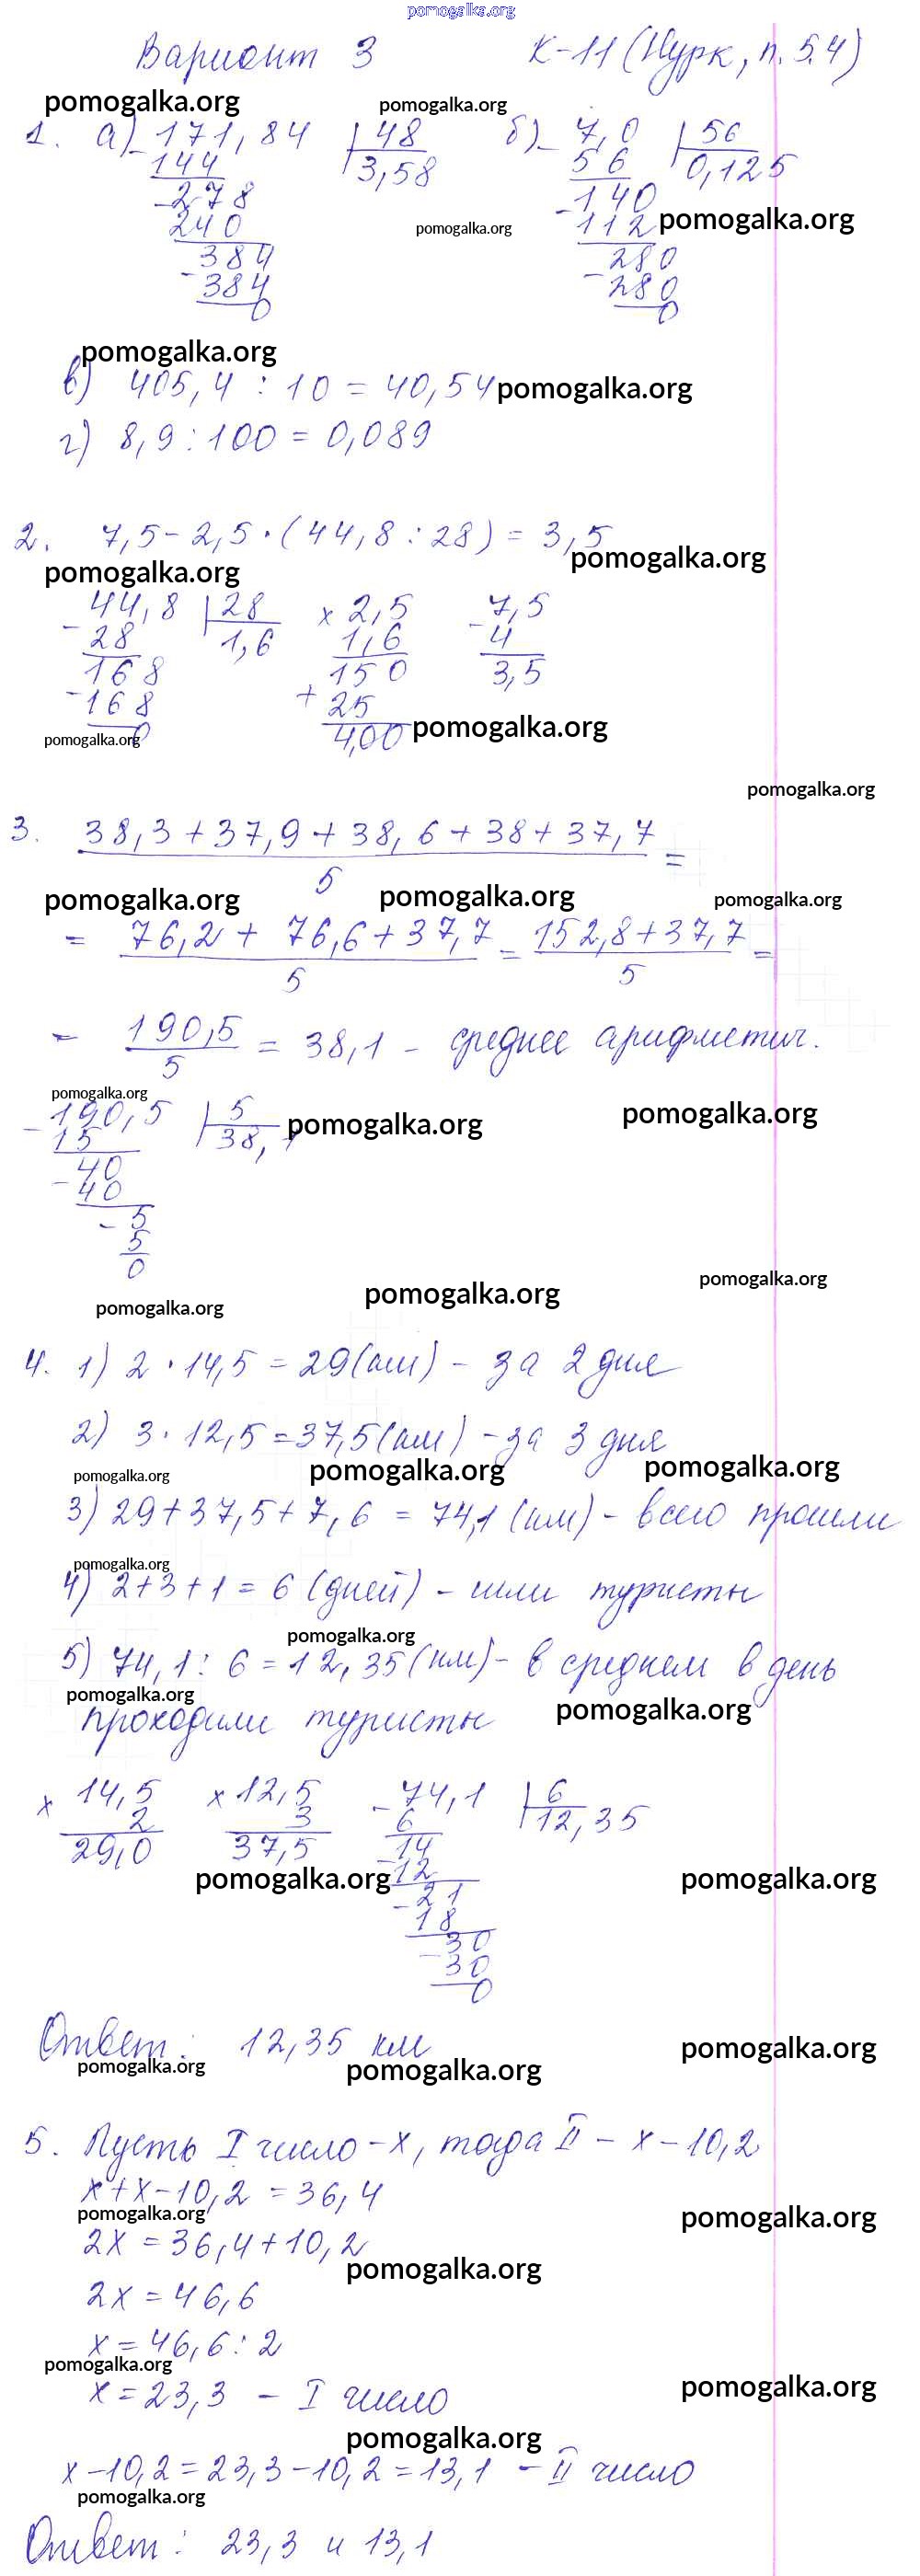 pomogalka.org
Вариант 3 К-11 (Нурк, п. 5.4)
pomogalka.org pomogalka.org
1. а) 171,84 | 48 б) 7,0 | 56
144 3,58 56 0,125
278 140
240 112
pomogalka.org pomogalka.org
384 280
384 280
0 0
pomogalka.org
в) 405,4 : 10 = 40,54
pomogalka.org
г) 8,9 : 100 = 0,089
2. 7,5 - 2,5 · (44,8 : 28) = 3,5
pomogalka.org pomogalka.org
- 44,8 | 28 × 2,5 - 7,5
28 1,6 1,6 4
168 150 3,5
- 168 + 25
0 4,00
pomogalka.org pomogalka.org
pomogalka.org
3. 38,3 + 37,9 + 38,6 + 38 + 37,7 =
5
pomogalka.org pomogalka.org pomogalka.org
= 76,2 + 76,6 + 37,7 = 152,8 + 37,7 =
5 5
= 190,5 = 38,1 - среднее арифметич.
5
pomogalka.org
- 190,5 | 5
15 38,1
pomogalka.org pomogalka.org
40
- 40
- 5
5
0
pomogalka.org pomogalka.org pomogalka.org
4. 1) 2 · 14,5 = 29 (км) - за 2 дня
2) 3 · 12,5 = 37,5 (км) - за 3 дня
pomogalka.org pomogalka.org pomogalka.org
3) 29 + 37,5 + 7,6 = 74,1 (км) - всего прошли
pomogalka.org
4) 2 + 3 + 1 = 6 (дней) - шли туристы
pomogalka.org
5) 74,1 : 6 = 12,35 (км) - в среднем в день
pomogalka.org pomogalka.org
проходили туристы
× 14,5 × 12,5 - 74,1 | 6
2 3 6 12,35
29,0 37,5 14
pomogalka.org pomogalka.org
- 12
- 21
18
30
- 30
0
Ответ: 12,35 км
pomogalka.org pomogalka.org pomogalka.org
5. Пусть I число - х, тогда II - х - 10,2
х + х - 10,2 = 36,4
pomogalka.org pomogalka.org
2х = 36,4 + 10,2
pomogalka.org
2х = 46,6
х = 46,6 : 2
pomogalka.org pomogalka.org
х = 23,3 - I число
pomogalka.org
х - 10,2 = 23,3 - 10,2 = 13,1 - II число
pomogalka.org
Ответ: 23,3 и 13,1